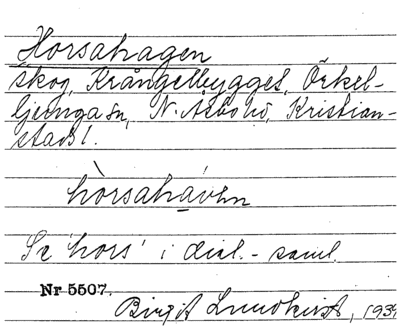 Horsahagen
skog, Krångelbygget, Örkel-
ljunga sn, N. Åsbo hd, Kristian-
stads l.
hòrsahávən
Se 'hors' i dial.-saml.
Nr 5507.
Birgit Lundkvist, 193